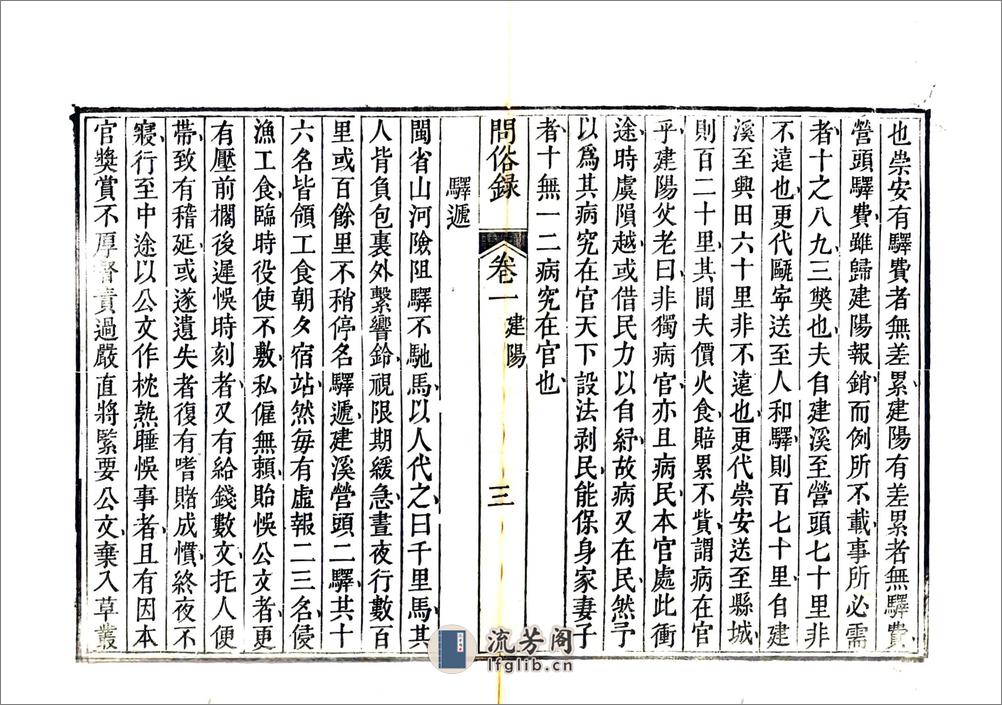 也崇安有驛費者無差累建陽有差累者無驛費
營頭驛費雖歸建陽報銷而例所不載事所必需
者十之八九三獘也夫自建溪至營頭七十里非
不遠也更代甌寧送至人和驛則百七十里自建
溪至興田六十里非不遠也更代崇安送至縣城
則百二十里其間夫價火食賠累不貲謂病在官
乎建陽父老曰非獨病官亦且病民本官處此衝
途時虞隕越或借民力以自紓故病又在民然予
以爲其病究在官天下設法剥民能保身家妻子
者十無一二病究在官也
問俗録
卷一
建陽
三
驛遞
閩省山河險阻驛不馳馬以人代之曰千里馬其
人皆負包裹外繫響鈴視限期緩急晝夜行數百
里或百餘里不稍停名驛遞建溪營頭二驛其十
六名皆領工食朝夕宿站然每有虛報二三名侵
漁工食臨時役使不敷私僱無賴貽悞公文者更
有壓前擱後遲悞時刻者又有給錢數文托人便
帶致有稽延或遂遺失者復有嗜賭成慣終夜不
寢行至中途以公文作枕熟睡悞事者且有因本
官獎賞不厚督責過嚴直將緊要公文棄入草叢
流芳阁
lfglib.cn